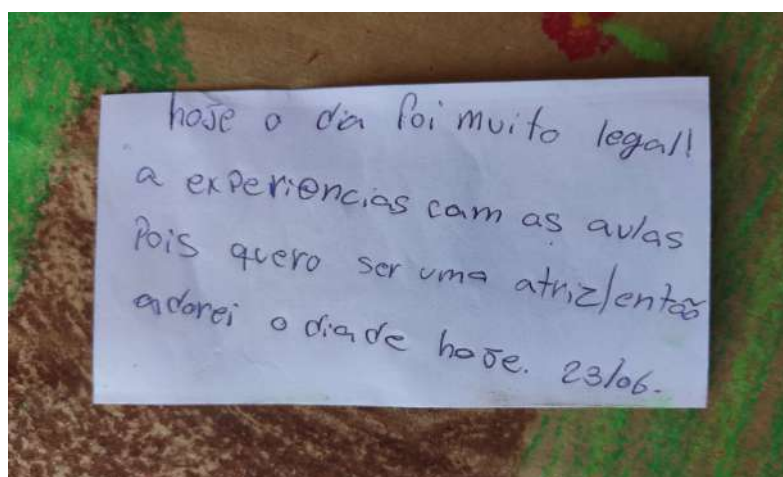 hoje o dia foi muito legal!
a experiencias com as aulas
Pois quero ser uma atriz/então
adorei o dia de hoje. 23/06.